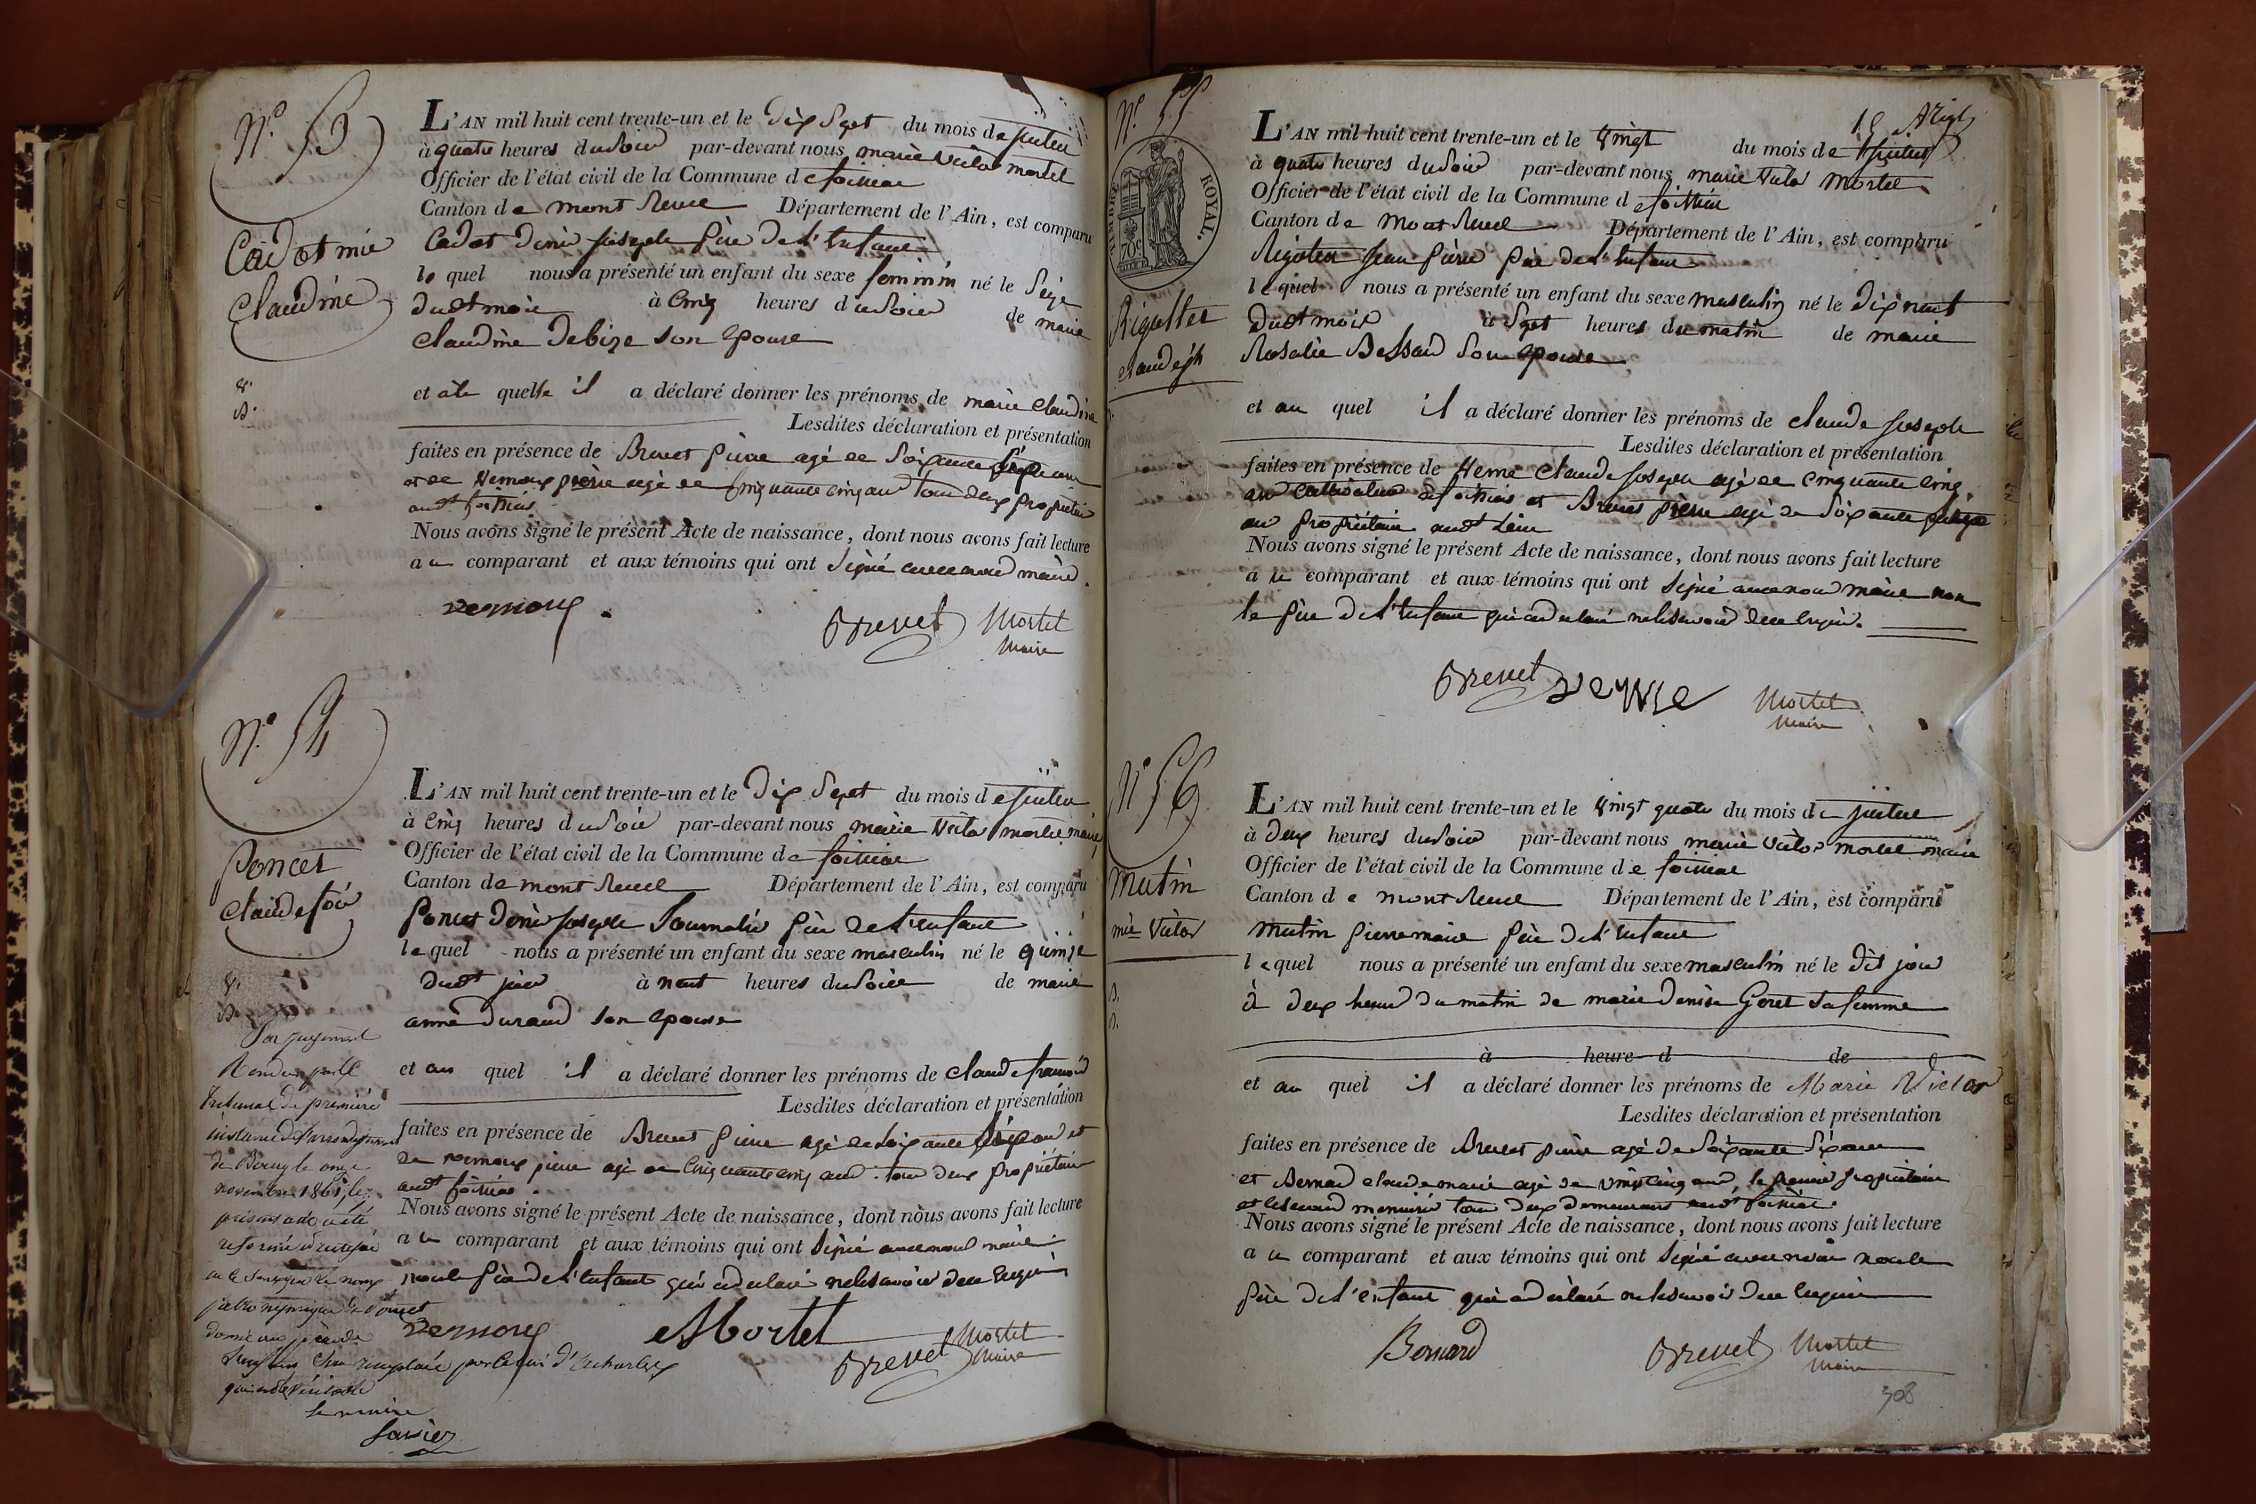 N.° 53
Cadot mie
Claudine
L'AN mil huit cent trente-un et le dix Sept du mois de juillet
à quatre heures du Soir par-devant nous marie Victor mortel
Officier de l'état civil de la Commune de foissiat
Canton de mont Revel Département de l'Ain, est comparu
Cadot Denis joseph père de l'Enfant
le quel nous a présenté un enfant du sexe feminin né le Seize
dudt mois à Cinq heures du Soir de marie
Claudine Debize Son Epouse
et à la quelle il a déclaré donner les prénoms de marie Claudine
Lesdites déclaration et présentation
faites en présence de Brevet pierre agé de Soixante ans
et de pierre agé de Cinquante cinq ans tous deux propriétaires
audt foissiat
Nous avons signé le présent Acte de naissance, dont nous avons fait lecture
au comparant et aux témoins qui ont Signé avec nous maire.
Brevet Mortel
Maire
N.° 54
Poncet
Claude fois
L'AN mil huit cent trente-un et le Dix Sept du mois de juillet
à Cinq heures du Soir par-devant nous marie Victor mortel maire
Officier de l'état civil de la Commune de foissiat
Canton de mont Revel Département de l'Ain, est comparu
Poncet Denis joseph Journalier père de l'enfant
le quel nous a présenté un enfant du sexe masculin né le quinze
dudt à neuf heures du Soir de marie
anne Durand Son Epouse
et au quel il a déclaré donner les prénoms de Claude françois
Lesdites déclaration et présentation
faites en présence de Brevet pierre agé de Soixante ans et
de pierre agé de Cinquante cinq ans tous deux propriétaires
audt foissiat.
Nous avons signé le présent Acte de naissance, dont nous avons fait lecture
au comparant et aux témoins qui ont Signé avec nous maire
non le père de l'Enfant qui a déclaré ne le Savoir de ce Enquis
Mortel
Brevet Mortel
Maire
Par jugement
Rendu par le
Tribunal de première
instance de l'arrondissement
de Bourg le onze
novembre 1861, le
présent acte a été
réformé et rectifié
en ce sens que le nom
patronymique de Poncet
donné au père de
l'enfant sera remplacé par celui d'
qui est le véritable
Le maire
N.° 55
TIMBRE ROYAL.
70c
Rigollet
Claude jh
15 Avril
L'AN mil huit cent trente-un et le Vingt du mois de juillet
à quatre heures du Soir par-devant nous marie Victor Mortel
Officier de l'état civil de la Commune de foissiat
Canton de Mont Revel Département de l'Ain, est comparu
Rigollet Jean pierre père de l'Enfant
le quel nous a présenté un enfant du sexe masculin né le dix neuf
dudt mois à Sept heures du matin de marie
Rosalie Bessard Son Epouse
et au quel il a déclaré donner les prénoms de Claude joseph
Lesdites déclaration et présentation
faites en présence de Claude joseph agé de Cinquante cinq
ans Cultivateur à foissiat et Brevet pierre agé de Soixante
ans propriétaire audt Lieu
Nous avons signé le présent Acte de naissance, dont nous avons fait lecture
au comparant et aux témoins qui ont Signé avec nous maire non
le père de l'Enfant qui a déclaré ne le Savoir de ce Enquis.
Brevet Mortel
Maire
N° 56
Mutin
mie Victor
L'AN mil huit cent trente-un et le Vingt quatre du mois de juillet
à deux heures du Soir par-devant nous marie Victor mortel maire
Officier de l'état civil de la Commune de foissiat
Canton de mont Revel Département de l'Ain, est comparu
Mutin pierre marie père de l'Enfant
le quel nous a présenté un enfant du sexe masculin né le dit jour
à deux heures du matin de marie Denise Goret Sa femme
à heure d de
et au quel il a déclaré donner les prénoms de Marie Victor
Lesdites déclaration et présentation
faites en présence de Brevet pierre agé de Soixante Six ans
et Bernard claude marie agé de Vingt Cinq ans, le premier propriétaire
et le Second menuisier tous deux demeurant audt foissiat
Nous avons signé le présent Acte de naissance, dont nous avons fait lecture
au comparant et aux témoins qui ont Signé avec nous non le
père de l'enfant qui a déclaré ne le Savoir de ce Enquis
Bernard Brevet Mortel
Maire
308